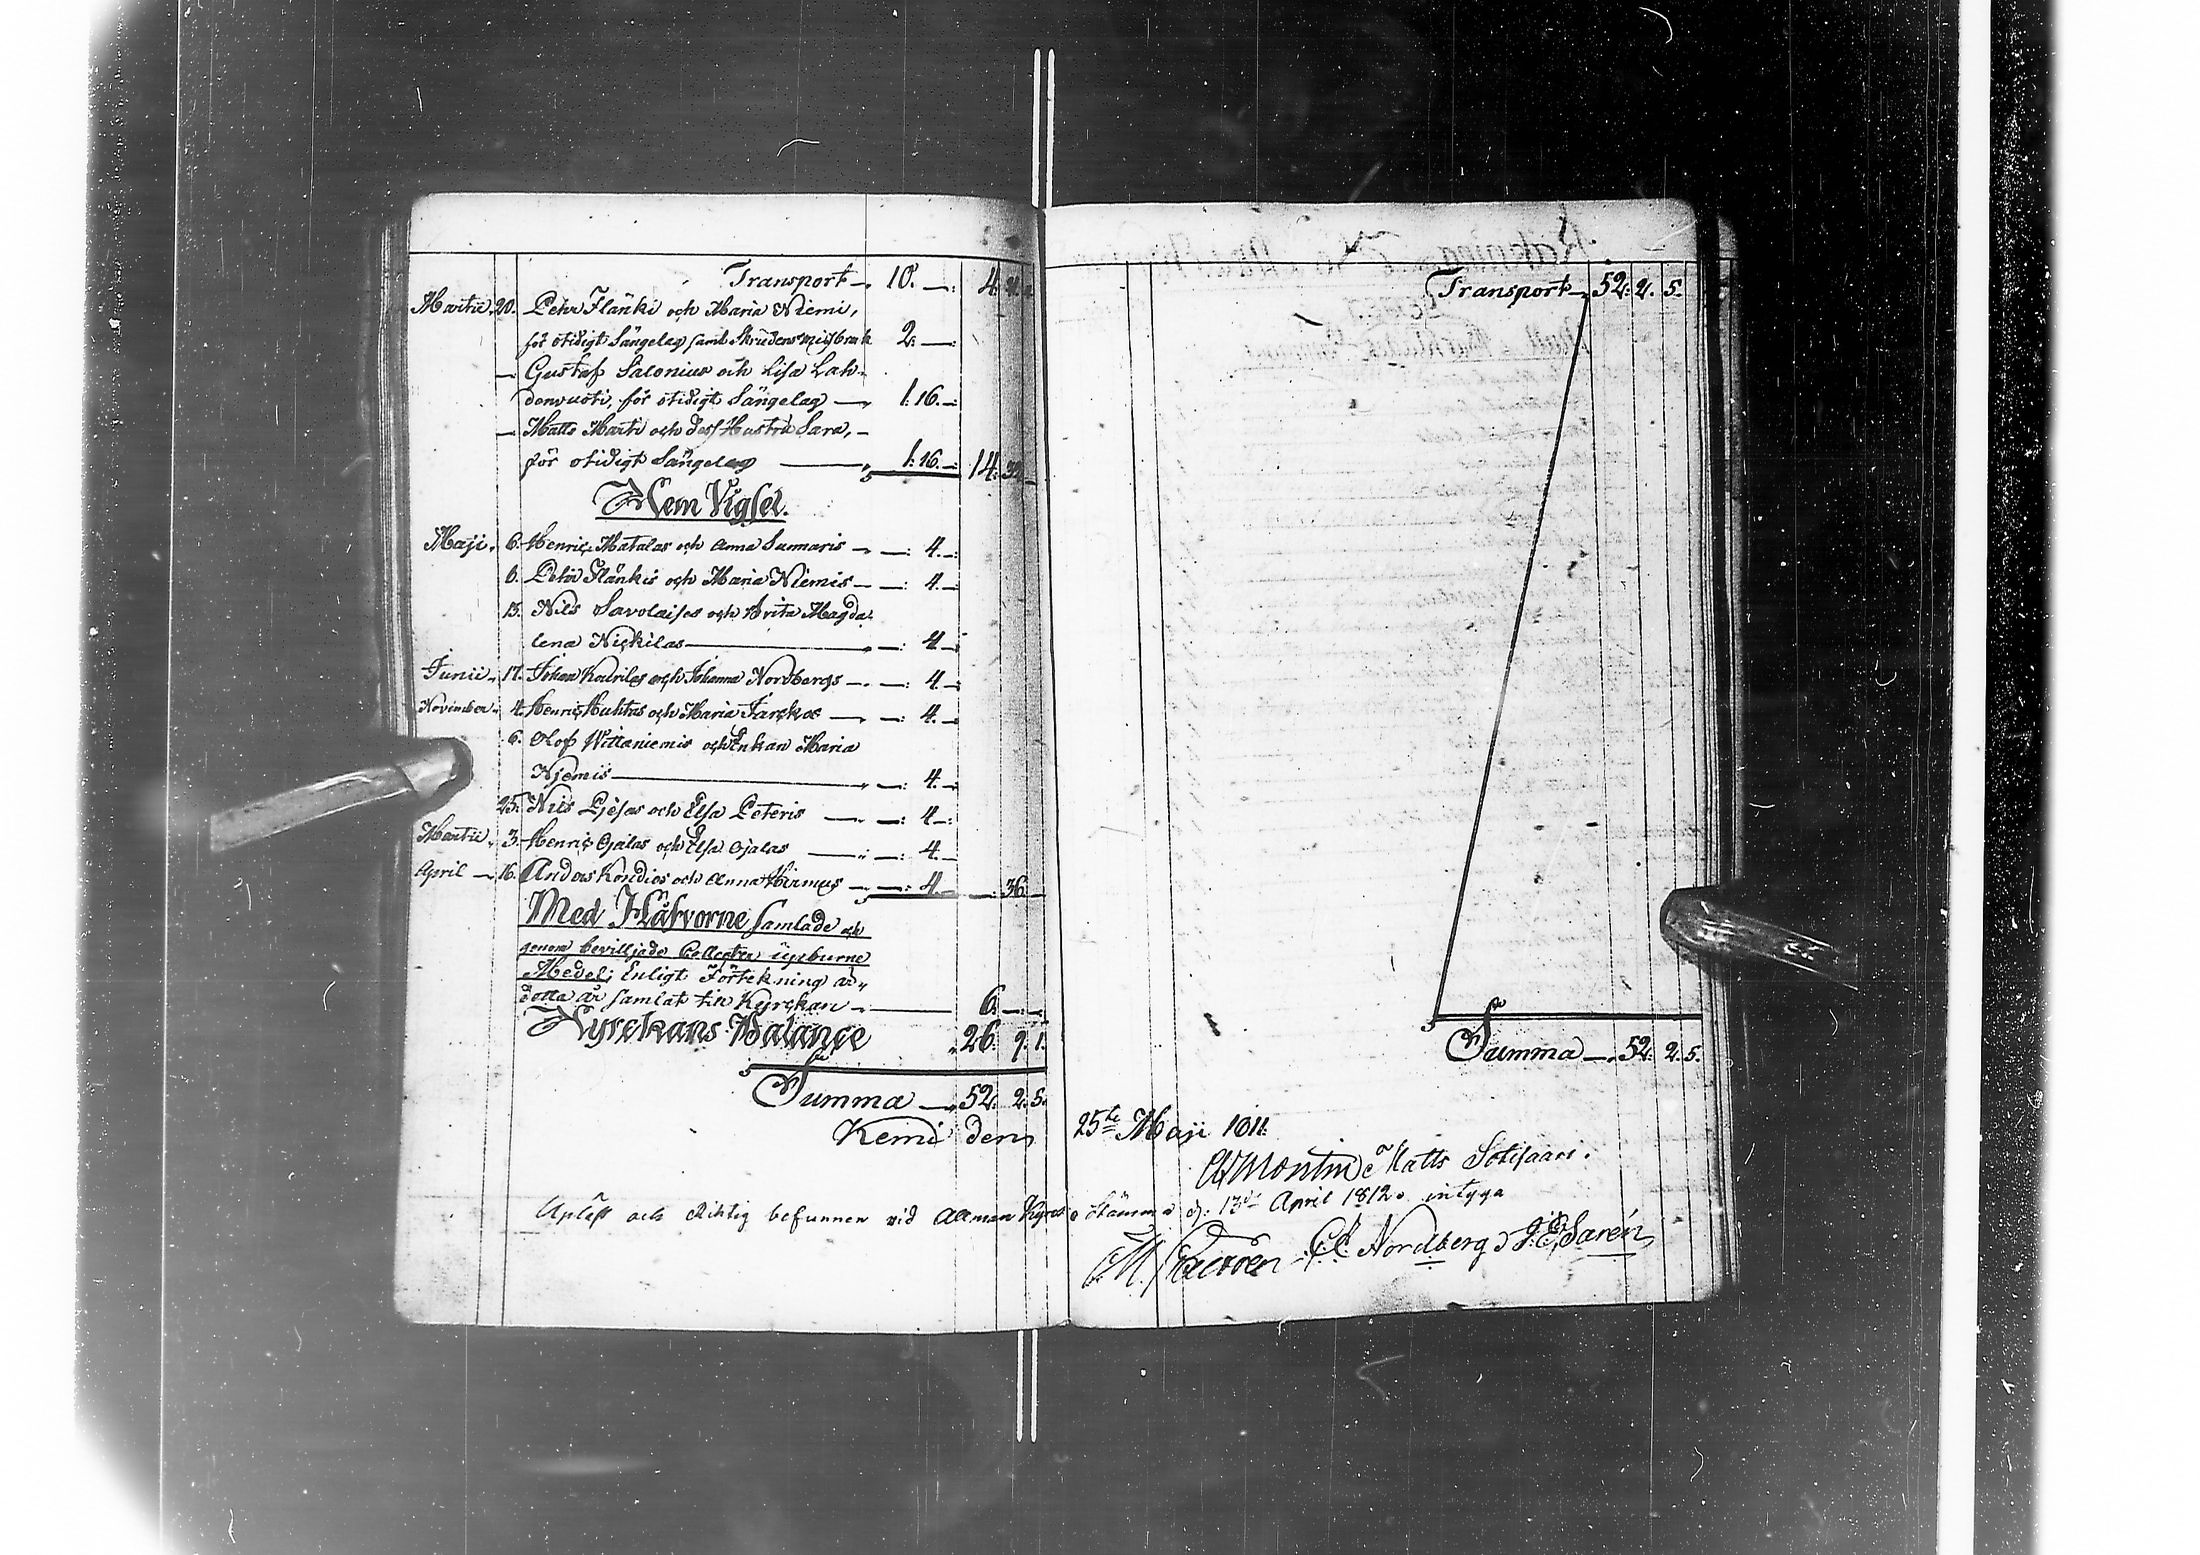 Transport — 10. —: 4. 4.
Martii. 20. Pehr Flänki och Maria Niemi,
för otidigt Sängelag samt Skrudens missbruk 2: —:
— Gustaf Salonius och Lisa Lah-
denvuoti, för otidigt Sängelag — 1: 16. —:
— Matts Marti och dess Hustru Sara, —
för otidigt Sängelag — 1: 16. —: 14: 32
Hem Vigsel.
Maji. 6. Henric Matalas och Anna Sunnaris — —: 4. —:
6. Pehr Flänkis och Maria Niemis — —: 4. —:
13. Nils Savolaises och Brita Magda-
lena Nickilas — —: 4. —:
Junii. 17. Johan Kourilas och Johanna Nordbergs — —: 4. —:
November. 4. Henric Huhtas och Maria Jarckos — —: 4. —:
6. Olof Wittaniemis och Enkan Maria
Njemis — —: 4. —:
25. Nils Pjesas och Elsa Peteris — —: 4 —:
Martii. 3. Henric Ojalas och Elsa Ojalas — —: 4. —
April — 16. Anders Kondios och Anna Hirmus — —: 4. — —: 36. —
Med Håfvorne samlade och
genom bevilljade Collecter upburne
Medel; Enligt Förtekning är,
detta år samlat till Kyrckan — 6. —. —.
Kyrckans Balance 26. 9. 1.
Summa — 52. 2. 5.
Kemi den
Transport — 52: 2. 5.
Summa — 52. 2. 5.
25te Maji 1811.
Montin Matts Sotisaari.
Upläst och Richtig befunnen vid Allmän Kyrckostämma d. 13de April 1812. intyga
M. C. Nordberg J. E. Sarén